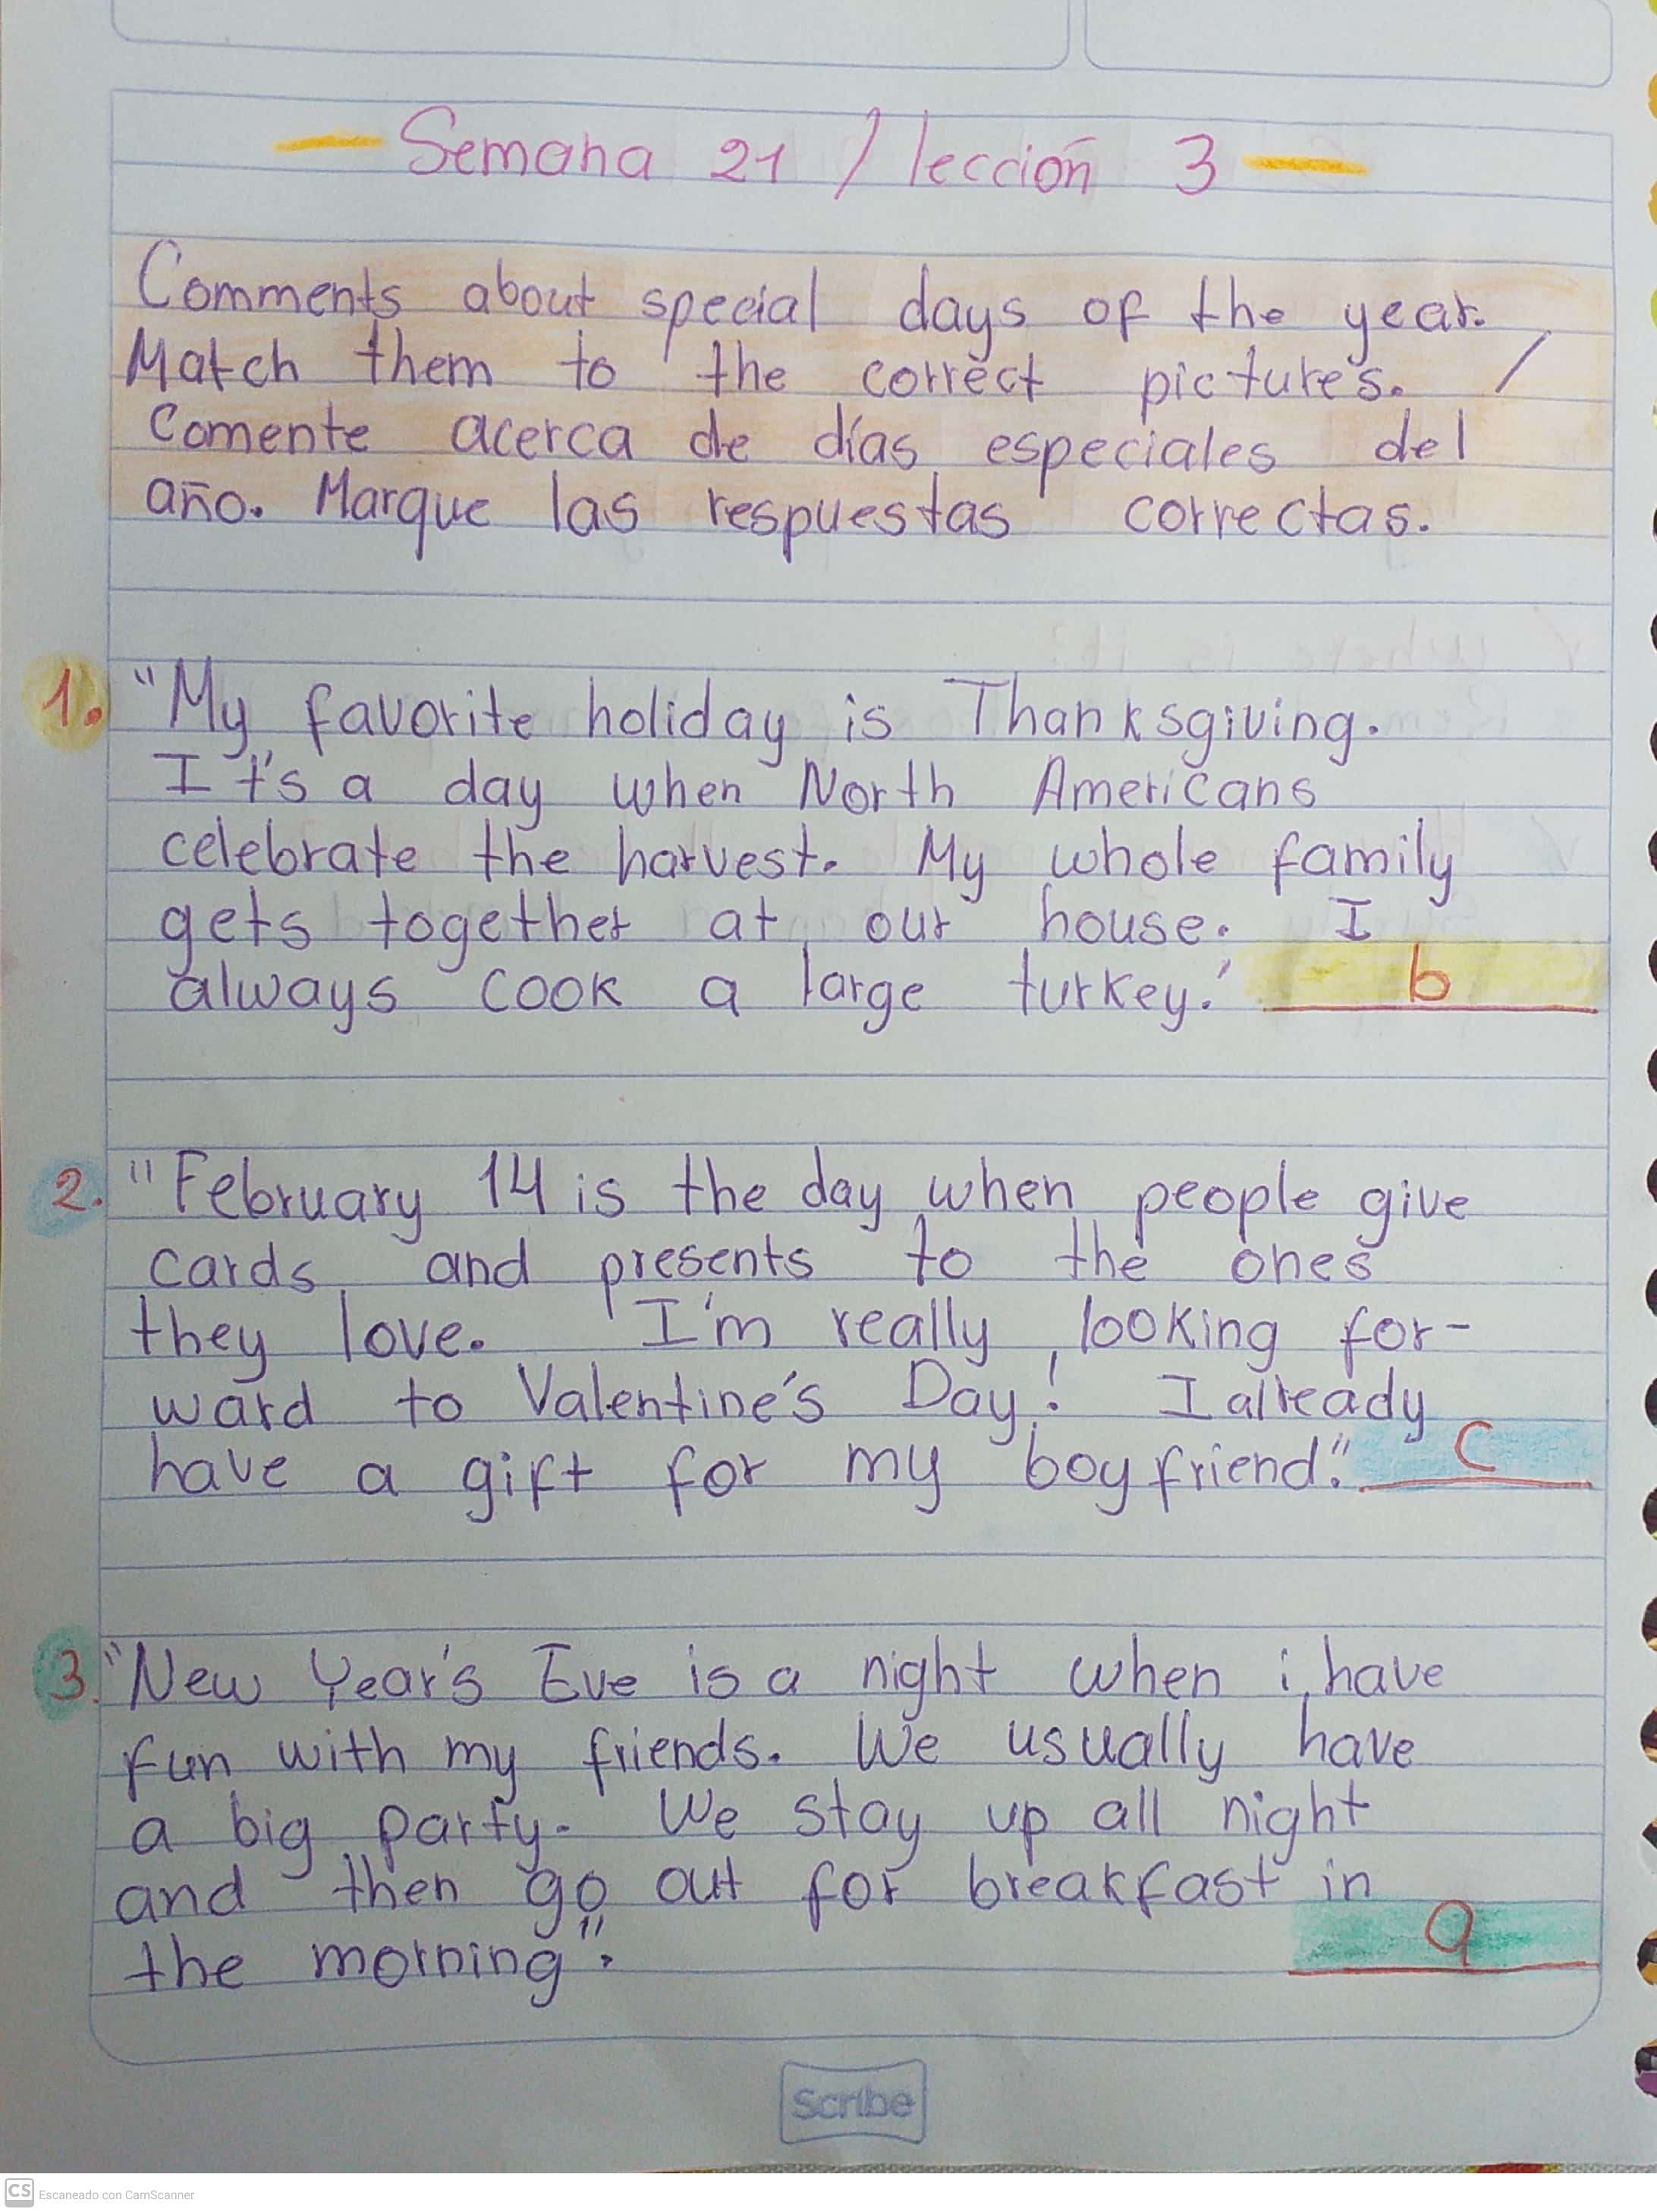 Semana 21 / lección 3
Comments about special days of the year.
Match them to the correct pictures. /
Comente acerca de días especiales del
año. Marque las respuestas correctas.
1. "My favorite holiday is Thanksgiving.
It's a day when North Americans
celebrate the harvest. My whole family
gets together at our house. I
always cook a large turkey.' b
2. "February 14 is the day when people give
cards and presents to the ones
they love. I'm really looking for-
ward to Valentine's Day! I already
have a gift for my boyfriend." c
3. "New Year's Eve is a night when i have
fun with my friends. We usually have
a big party. We stay up all night
and then go out for breakfast in
the morning". a
Scribe
CS Escaneado con CamScanner